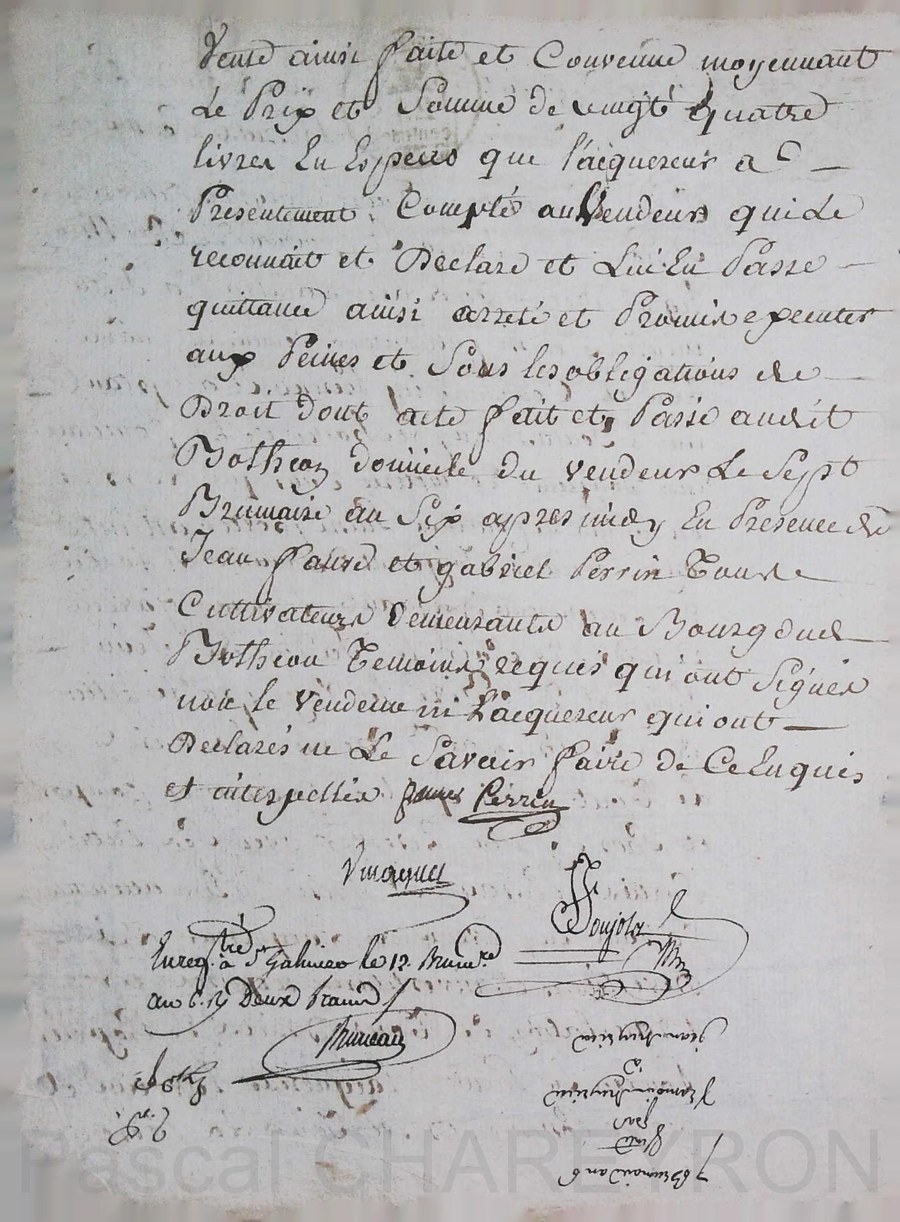 Vente ainsi faite et Convenue moyennant
Le Prix et Somme de vingt quatre
livres En Especes que l'acquereur a
Presentement Compté au Vendeur qui Le
reconnait et Declare et Lui En Passe
quittance ainsi arreté et Promis executer
aux Peines et Sous les obligations de
Droit dont acte fait et Passé audit
Botheon domicile du vendeur Le Sept
Brumaire an Six apres midy En Presence de
Jean faure et gabriel Perrin Tous de
Cultivateurs demeurants au Bourg dud
Botheon Temoins requis qui ont Signés
non le Vendeur ni L'acquereur qui ont
Declarés ne Le Savoir faire de Ce Enquis
et interpellés faure Perrin
Enreg.tré à St Galmier le 12 Brum.re
an 6. Deux francs
7 Brumaire an 6
Pascal CHAREYRON